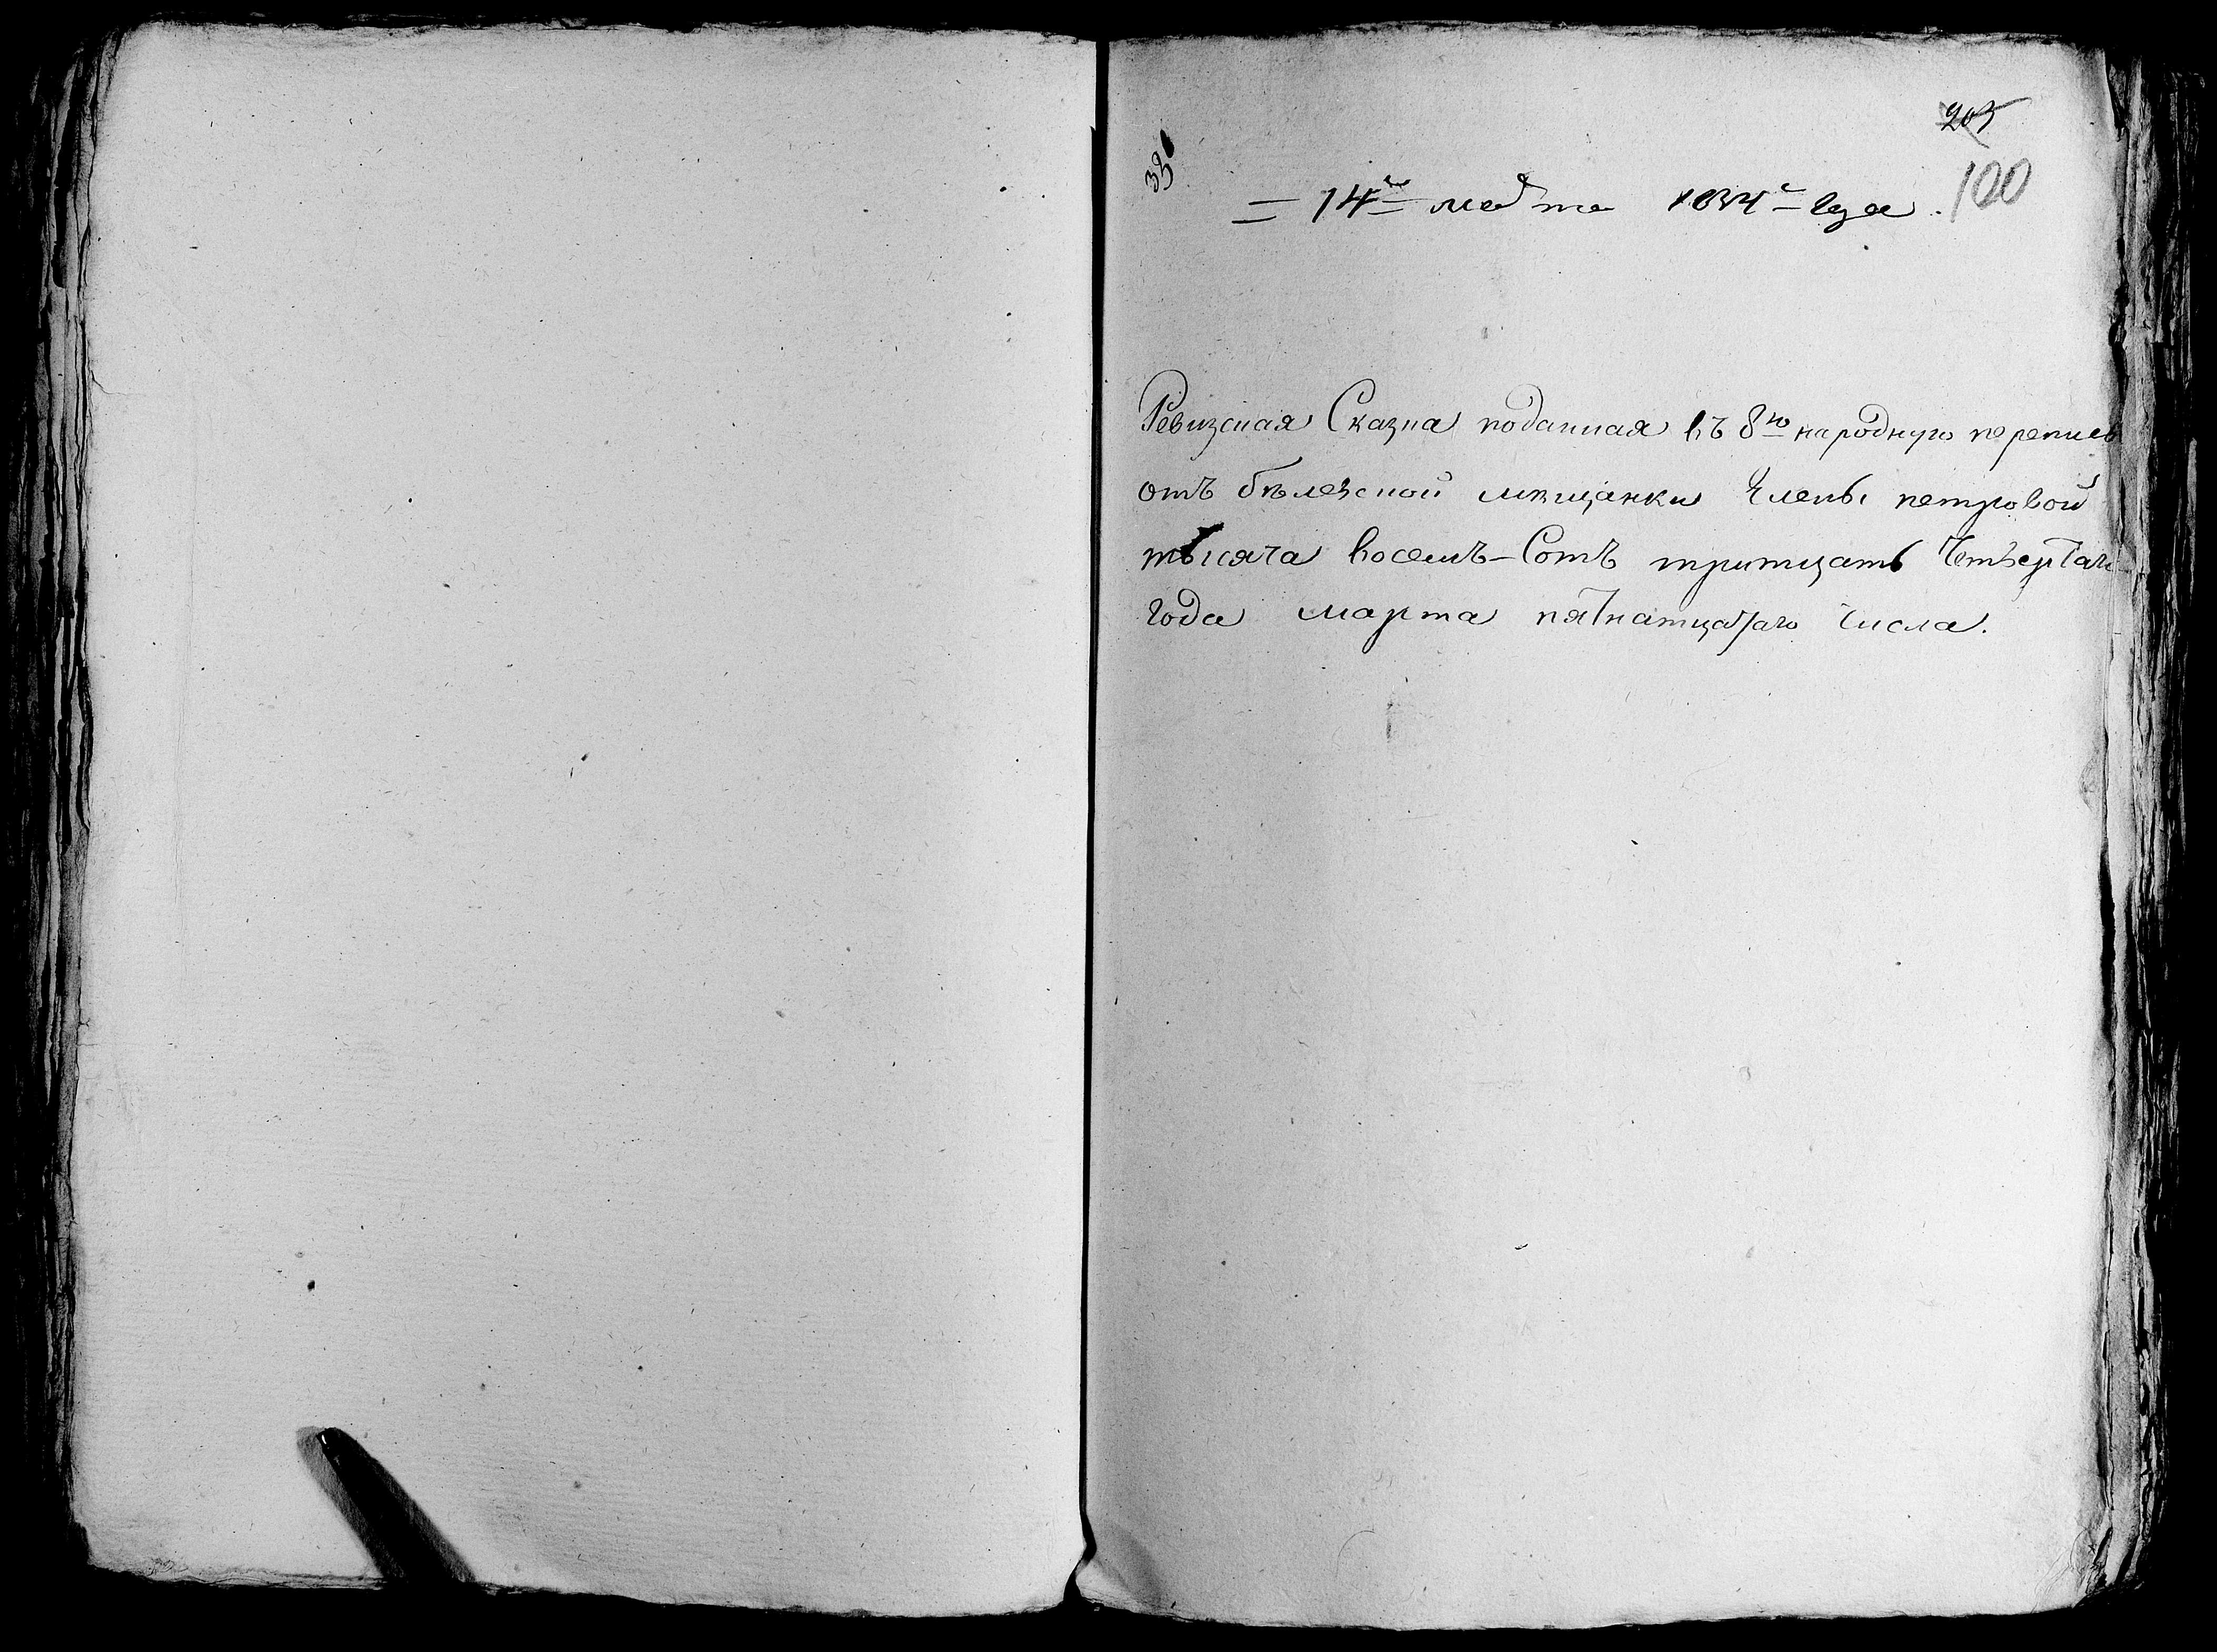 205
120
= 14го марта 1834го года.
Ревизская Сказка поданная въ 8ю народную перепись
отъ бѣлевской мѣщанки Елены петровой
тысяча восемь-Сотъ тритцать Четвертаго
года марта пятнатцатаго числа.